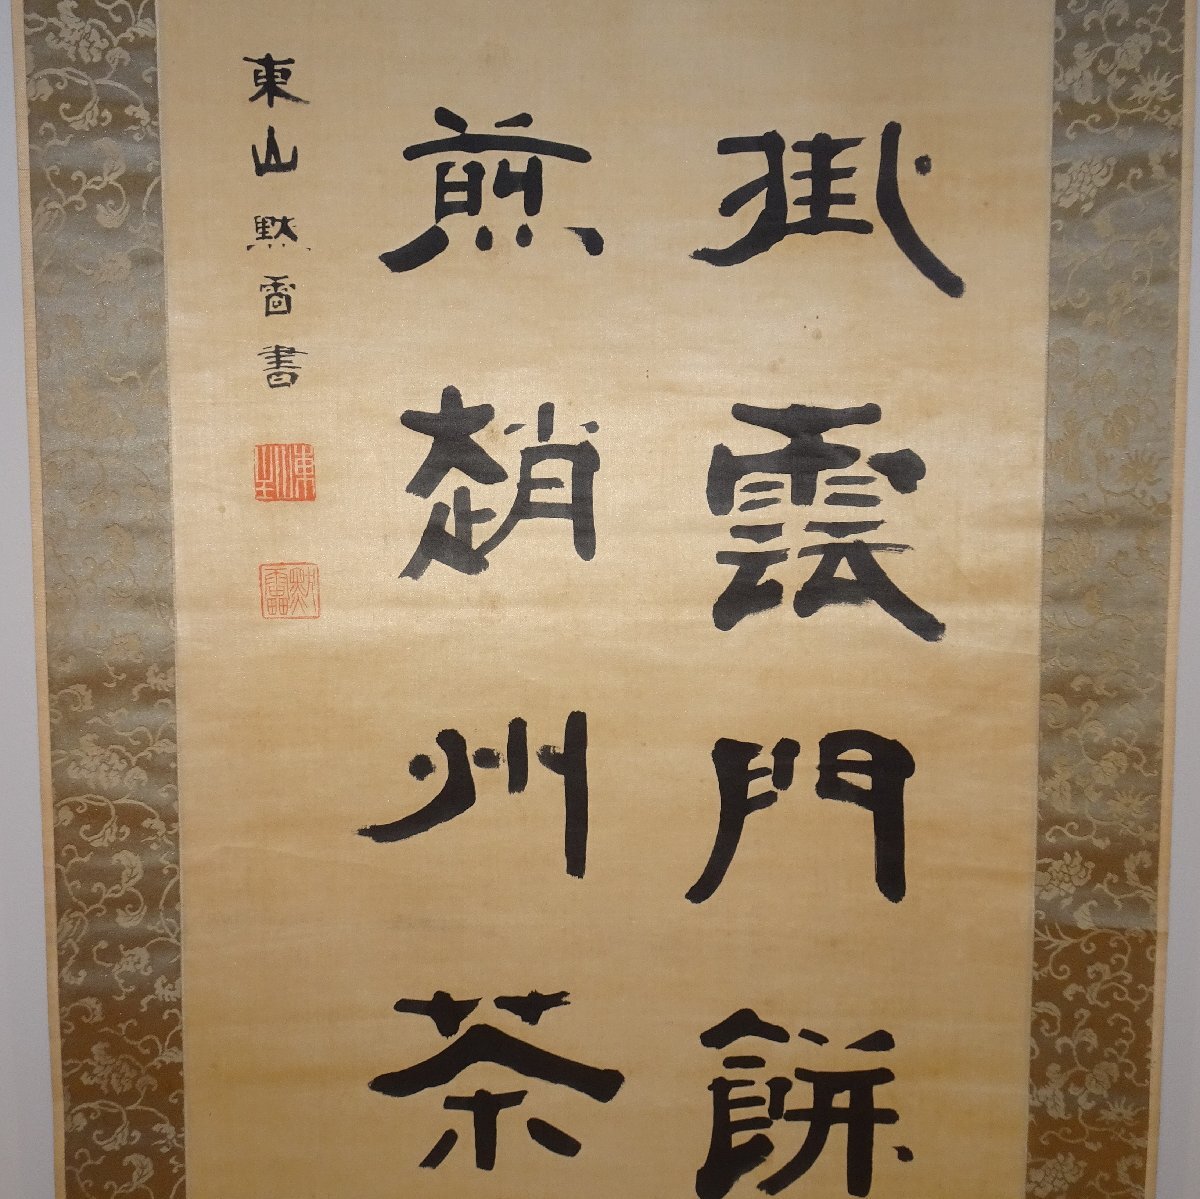 掛雲門餅
煎趙州茶
東山默雷書